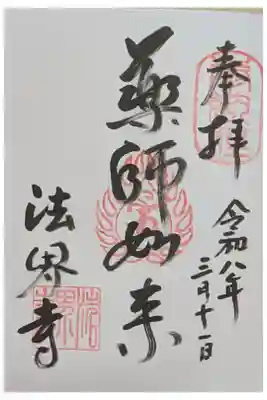 奉拝
令和八年
三月十一日
薬師如来
法界寺